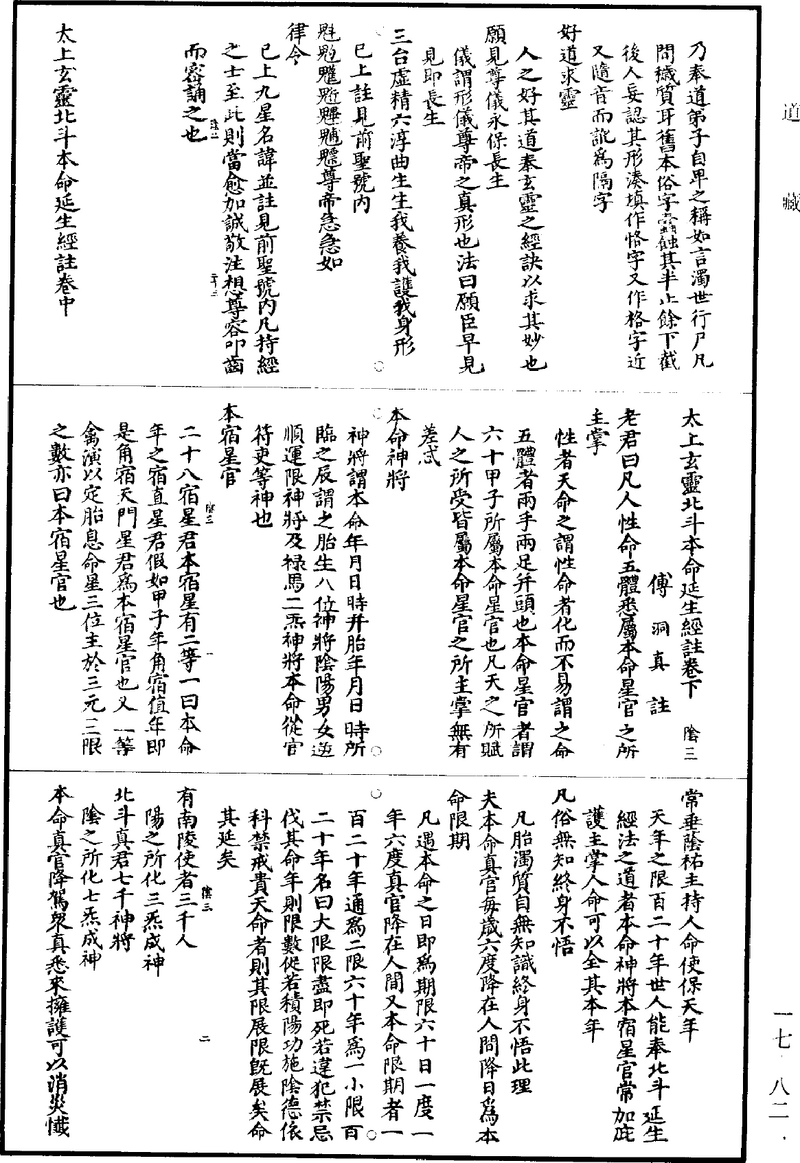 道藏
乃奉道弟子自卑之稱如言濁世行尸凡
間穢質耳舊本俗字蠹蝕其半止餘下截
後人妄認其形湊填作恪字又作格字近
又隨音而訛爲隔字
好道求靈
人之好其道奉玄靈之經訣以求其妙也
願見尊儀永保長生
儀謂形儀尊帝之真形也法曰願臣早見
見即長生
三台虛精六淳曲生生我養我護我身形
已上註見前聖號內
尊帝急急如
律令
已上九星名諱並註見前聖號內凡持經
之士至此則當愈加誠敬注想尊容叩齒
而密誦之也
太上玄靈北斗本命延生經註卷中
太上玄靈北斗本命延生經註卷下 陰三
傅洞真註
老君曰凡人性命五體悉屬本命星官之所
主掌
性者天命之謂性命者化而不易謂之命
五體者兩手兩足并頭也本命星官者謂
六十甲子所屬本命星官也凡天之所賦
人之所受皆屬本命星官之所主掌無有
差忒
本命神將
神將謂本命年月日時并胎年月日時所
臨之辰謂之胎生八位神將陰陽男女逆
順運限神將及祿馬二炁神將本命從官
符吏等神也
本宿星官
二十八宿星君本宿星有二等一曰本命
年之宿直星君假如甲子年角宿值年即
是角宿天門星君爲本宿星官也又一等
禽演以定胎息命星三位主於三元三限
之數亦曰本宿星官也
常垂蔭祐主持人命使保天年
天年之限百二十年世人能奉北斗延生
經法之道者本命神將本宿星官常加庇
護主掌人命可以全其本年
凡俗無知終身不悟
凡胎濁質自無知識終身不悟此理
夫本命真官每歲六度降在人間降日爲本
命限期
凡遇本命之日即爲期限六十日一度一
年六度真官降在人間又本命限期者一
百二十年通爲二限六十年爲一小限百
二十年名曰大限限盡即死若違犯禁忌
伐其命年則限數從若積陽功施陰德依
科禁戒貴天命者則其限展限既展矣命
其延矣
有南陵使者三千人
陽之所化三炁成神
北斗真君七千神將
陰之所化七炁成神
本命真官降駕衆真悉來擁護可以消災懺
一七·八二